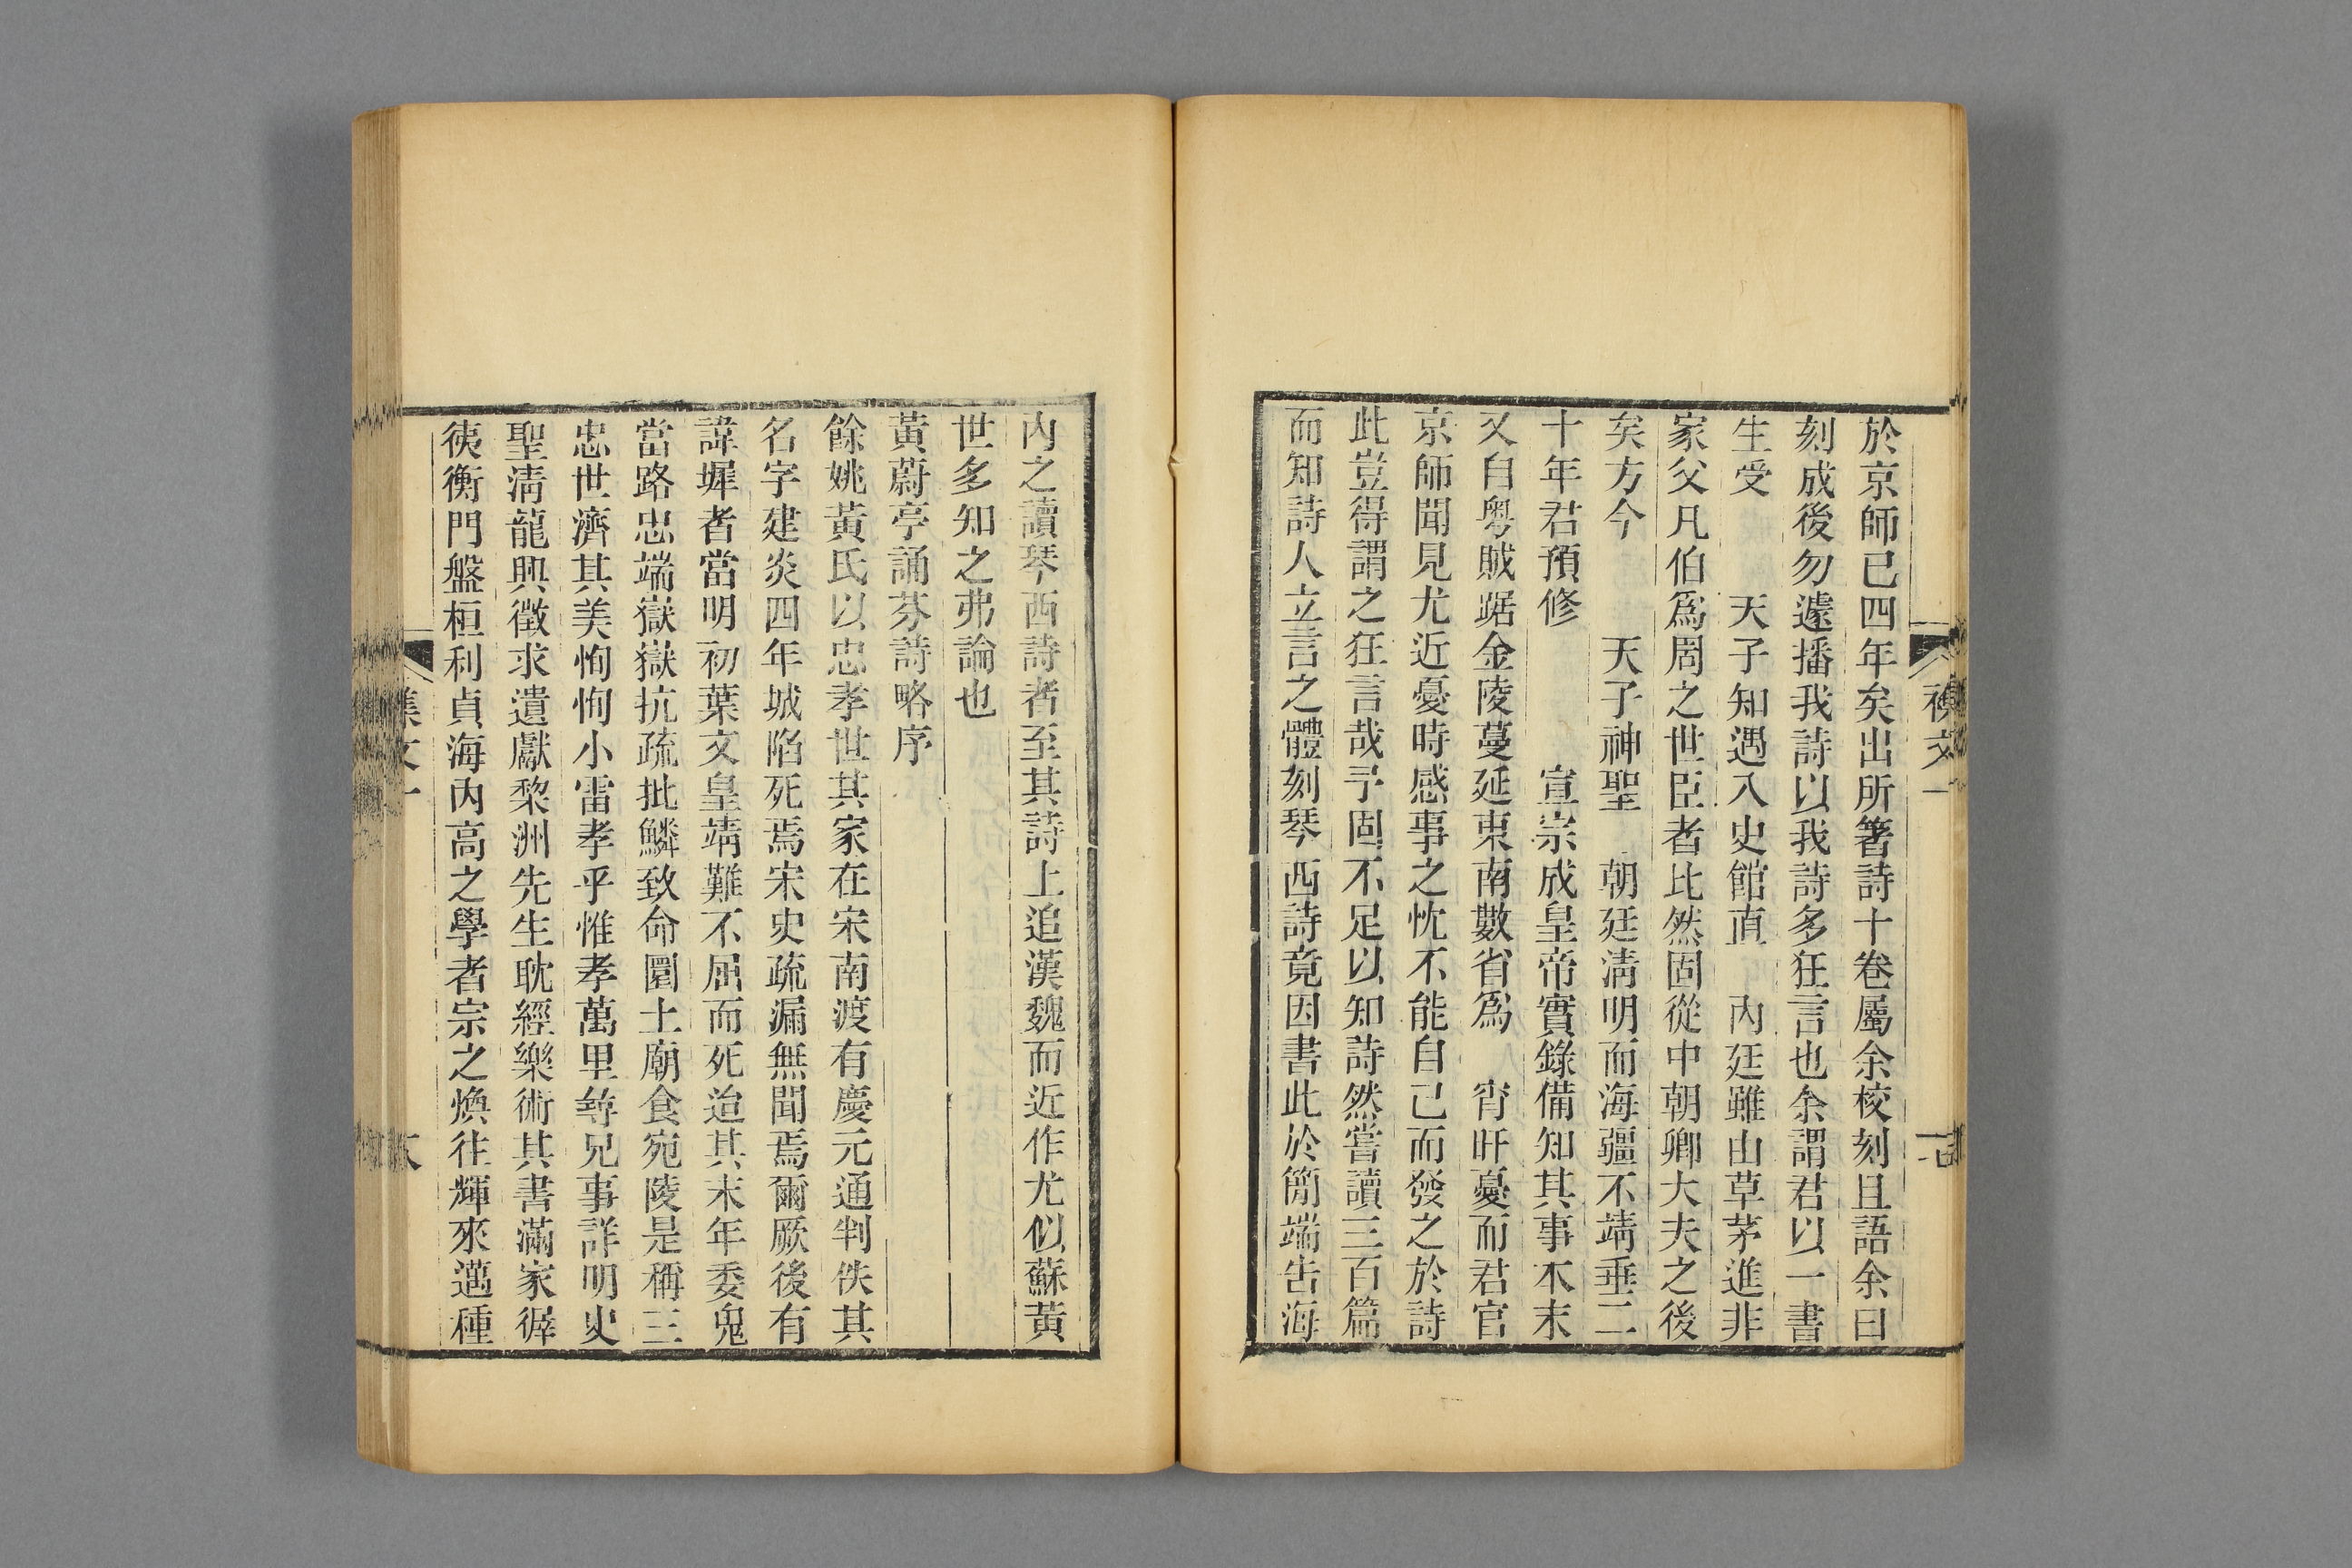 於京師已四年矣出所箸詩十卷屬余校刻且語余曰
刻成後勿遽播我詩以我詩多狂言也余謂君以一書
生受 天子知遇入史館直 內廷雖由草茅進非
家父凡伯爲周之世臣者比然固從中朝卿大夫之後
矣方今 天子神聖 朝廷淸明而海疆不靖垂二
十年君預修 宣宗成皇帝實錄備知其事本末
又自粵賊踞金陵蔓延東南數省爲 宵旰憂而君官
京師聞見尤近憂時感事之忱不能自已而發之於詩
此豈得謂之狂言哉予固不足以知詩然嘗讀三百篇
而知詩人立言之體刻琴西詩竟因書此於簡端告海
內之讀琴西詩者至其詩上追漢魏而近作尤似蘇黃
世多知之弗論也
黃蔚亭誦芬詩略序
餘姚黃氏以忠孝世其家在宋南渡有慶元通判佚其
名字建炎四年城陷死焉宋史疏漏無聞焉爾厥後有
諱墀者當明初葉文皇靖難不屈而死迨其末年委鬼
當路忠端嶽嶽抗疏批鱗致命圜土廟食宛陵是稱三
忠世濟其美恂恂小雷孝乎惟孝萬里尋兄事詳明史
聖淸龍興徵求遺獻棃洲先生耽經樂術其書滿家徲
徥衡門盤桓利貞海內高之學者宗之煥往輝來邁種
襍文一